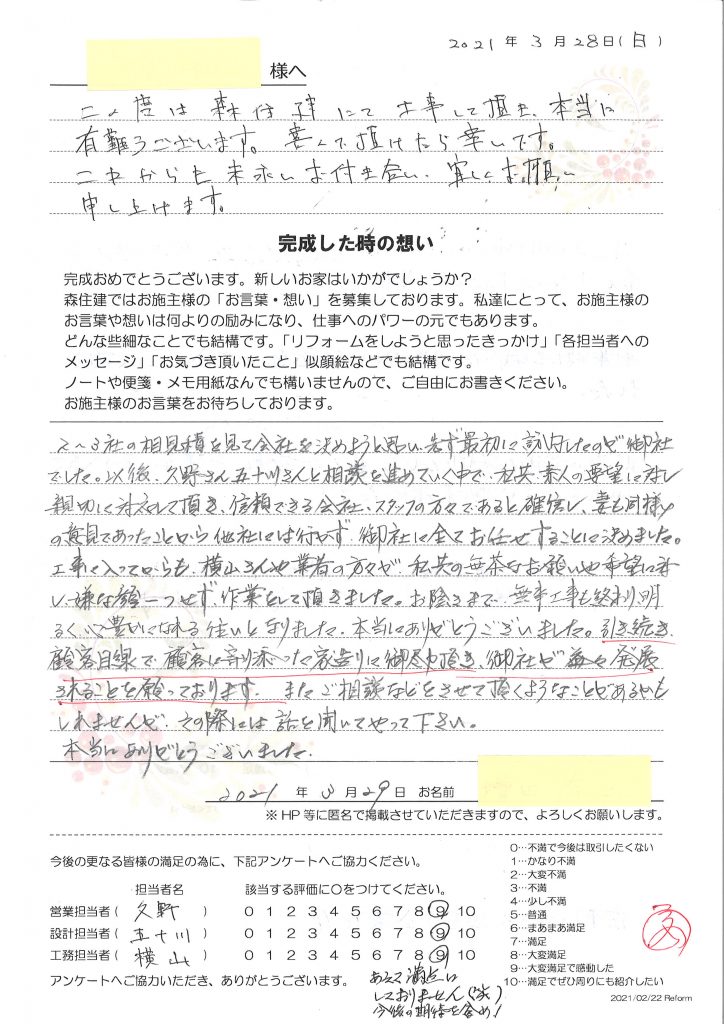 2021 年 3 月 28 日 ( 日 )
様へ
この度は 森住建 にて 工事して頂き、本当に
有難うございます。喜んで頂けたら幸いです。
これからも 末永いお付き合い、宜しくお願い
申し上げます。
完成した時の想い
完成おめでとうございます。新しいお家はいかがでしょうか？
森住建ではお施主様の「お言葉・想い」を募集しております。私達にとって、お施主様の
お言葉や想いは何よりの励みになり、仕事へのパワーの元でもあります。
どんな些細なことでも結構です。「リフォームをしようと思ったきっかけ」「各担当者への
メッセージ」「お気づき頂いたこと」似顔絵などでも結構です。
ノートや便箋・メモ用紙なんでも構いませんので、ご自由にお書きください。
お施主様のお言葉をお待ちしております。
2～3社の相見積を見て会社を決めようと思い、先ず最初に訪問したのが御社
でした。以後、久野さん五十川さんと相談を進めていく中で、私共素人の要望に対し
親切に対応して頂き、信頼できる会社、スタッフの方々であると確信し、妻も同様
の意見であったことから他社には行かず、御社に全てお任せすることに決めました。
工事に入ってからも、横山さんや業者の方々が、私共の無茶なお願いや希望に対
し、嫌な顔一つせず、作業をして頂きました。お陰さまで、無事工事も終わり、明
るく心豊かになれる住いとなりました。本当にありがとうございました。引き続き、
顧客目線で、顧客に寄り添った家造りに御尽力頂き、御社が益々発展
されることを願っております。またご相談などをさせて頂くようなことがあるかも
しれませんが、その際には話を聞いてやって下さい。
本当にありがとうございました。
2021 年 3 月 29 日 お名前
※ HP 等に匿名で掲載させていただきますので、よろしくお願いします。
今後の更なる皆様の満足の為に、下記アンケートへご協力ください。
担当者名 該当する評価に○をつけてください。
営業担当者 ( 久野 ) 0 1 2 3 4 5 6 7 8 9 10
設計担当者 ( 五十川 ) 0 1 2 3 4 5 6 7 8 9 10
工務担当者 ( 横山 ) 0 1 2 3 4 5 6 7 8 9 10
アンケートへご協力いただき、ありがとうございます。
あえて満点に
しておりません(笑)
今後の期待を含め!
0…不満で今後は取引したくない
1…かなり不満
2…大変不満
3…不満
4…少し不満
5…普通
6…まあまあ満足
7…満足
8…大変満足
9…大変満足で感動した
10…満足でぜひ周りにも紹介したい
2021/02/22 Reform